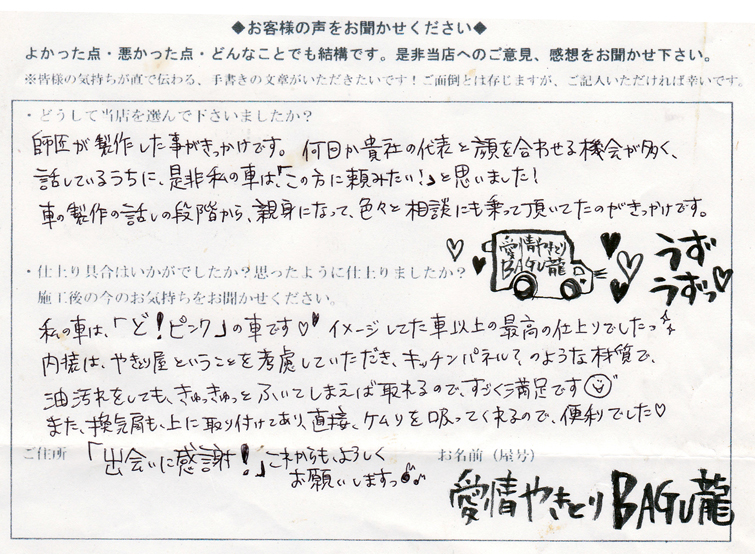 ◆お客様の声をお聞かせください◆
よかった点・悪かった点・どんなことでも結構です。是非当店へのご意見、感想をお聞かせ下さい。
※皆様の気持ちが直で伝わる、手書きの文章がいただきたいです！ご面倒とは存じますが、ご記入いただければ幸いです。
・どうして当店を選んで下さいましたか？
師匠が製作した事がきっかけです。何日か貴社の代表と顔を合わせる機会が多く、
話しているうちに、是非私の車は、「この方に頼みたい！」と思いました！
車の製作の話しの段階から、親身になって、色々と相談にも乗って頂いてたのがきっかけです。
愛情やきとり
BAGU龍
うず
うずっ♡
・仕上り具合はいかがでしたか？思ったように仕上りましたか？
施工後の今のお気持ちをお聞かせください。
私の車は、「ど！ピンク」の車です♡♥ イメージしてた車以上の最高の仕上りでしたっ
内装は、やきとり屋ということを考慮していただき、キッチンパネル？のような材質で、
油汚れをしても、きゅっきゅっとふいてしまえば取れるので、すごく満足です☺
また、換気扇も、上に取り付けてあり、直接、ケムリを吸ってくれるので、便利でした♡
ご住所 「出会いに感謝！」これからも、よろしく
お願いしますっ♪
お名前（屋号）
愛情やきとり BAGU龍